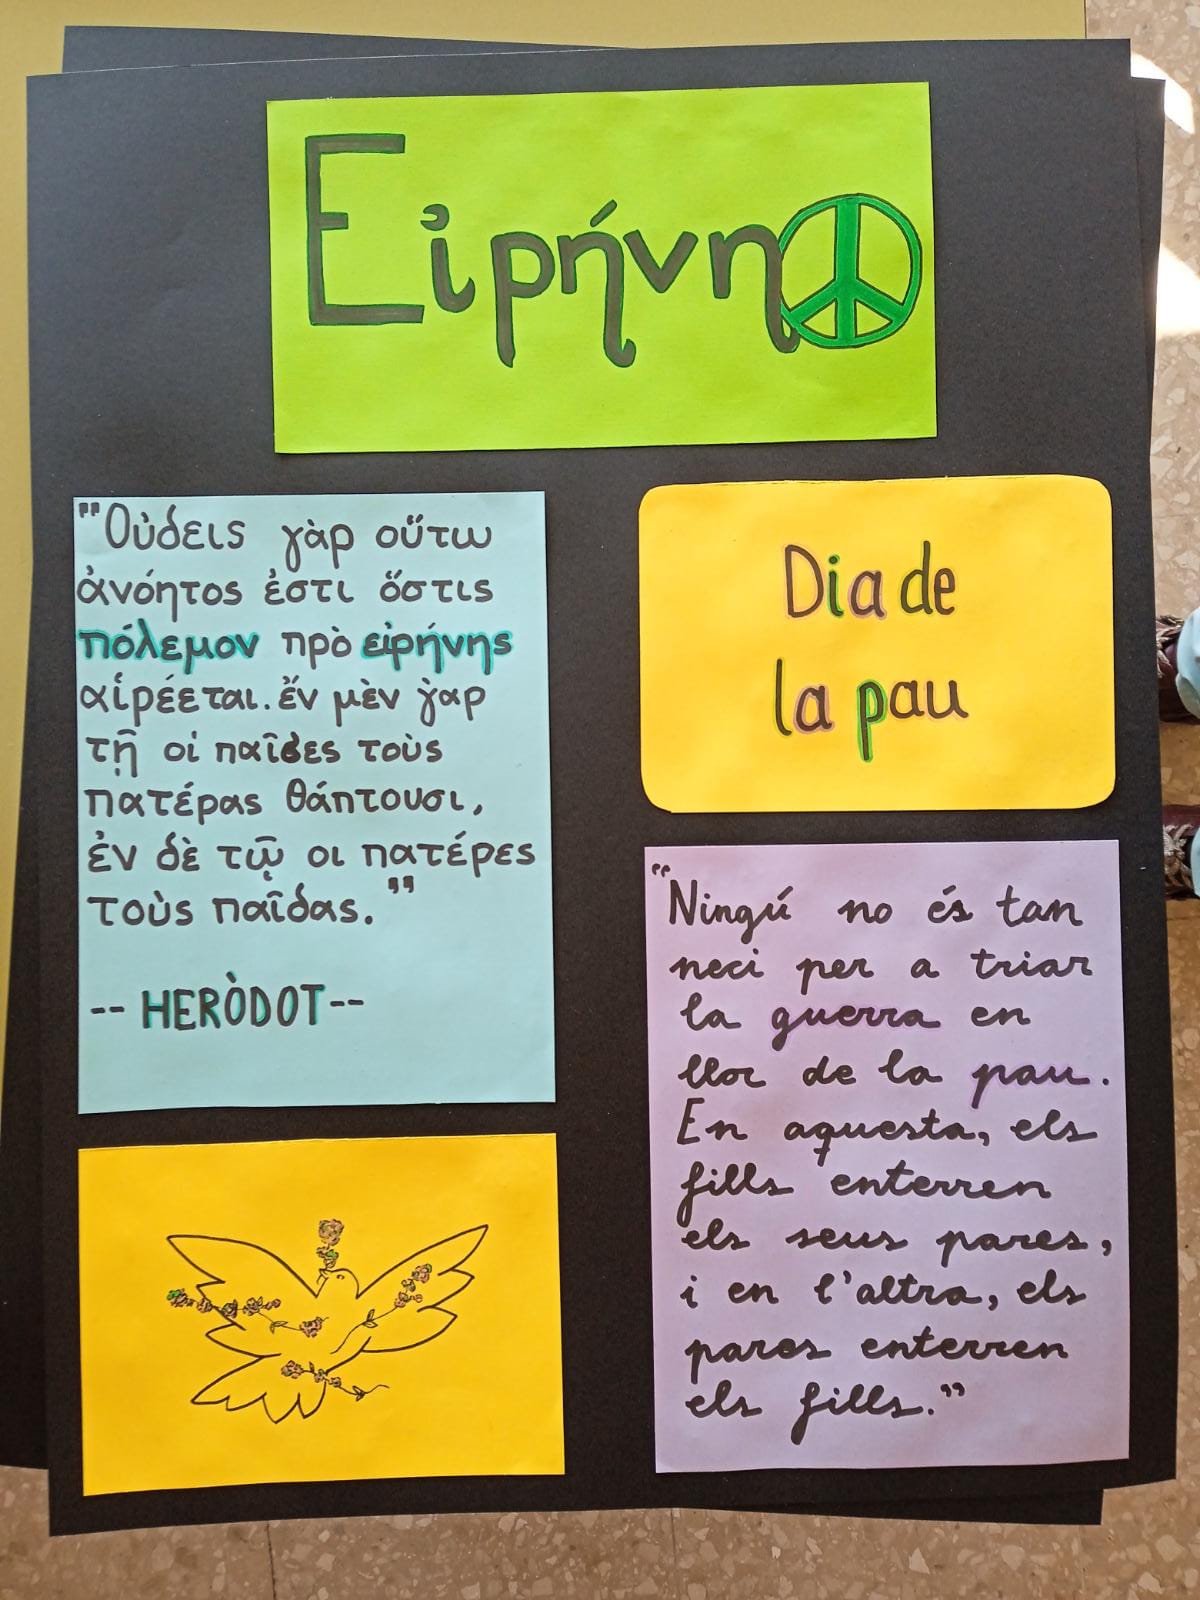 Εἰρήνη
"Οὐδεις γὰρ οὕτω
ἀνόητος ἐστι ὅστις
πόλεμον πρὸ εἰρήνης
αἱρέεται. ἔν μὲν γὰρ
τῇ οἱ παῖδες τοὺς
πατέρας θάπτουσι,
ἐν δὲ τῷ οι πατέρες
τοὺς παῖδας."
-- HERÒDOT--
Dia de
la pau
"Ningú no és tan
neci per a triar
la guerra en
lloc de la pau.
En aquesta, els
fills enterren
els seus pares,
i en l'altra, els
pares enterren
els fills."